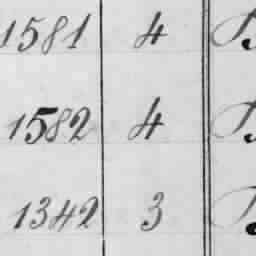 1581 4
1582 4
1342 3